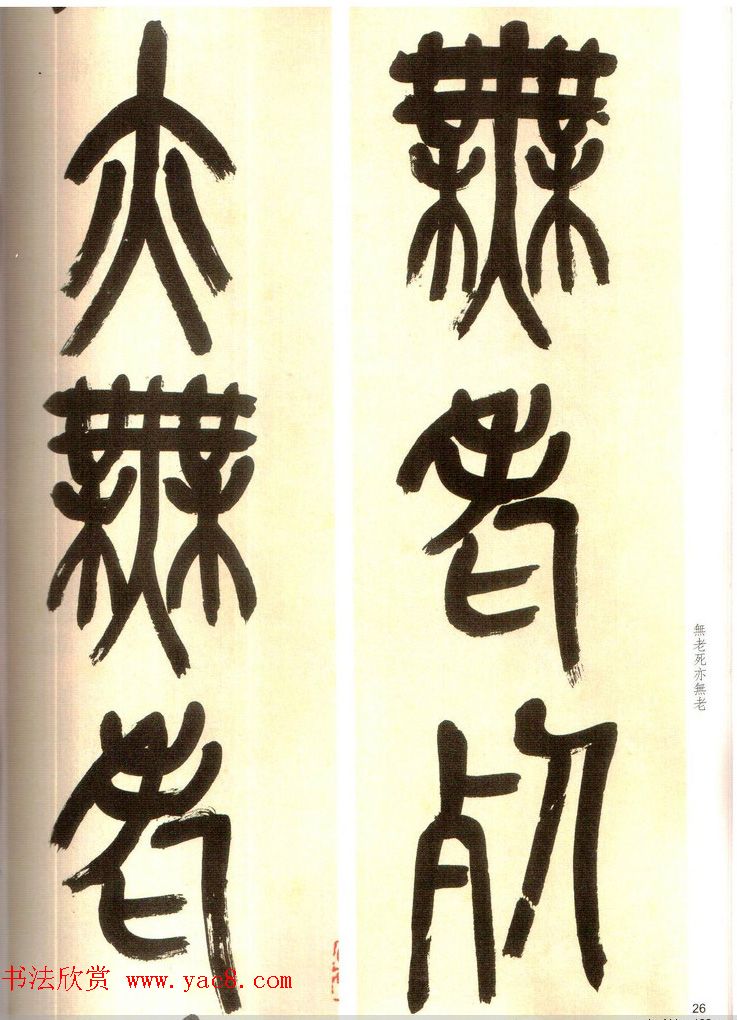 無老死
亦無老
無老死亦無老
26
书法欣赏 www.yac8.com